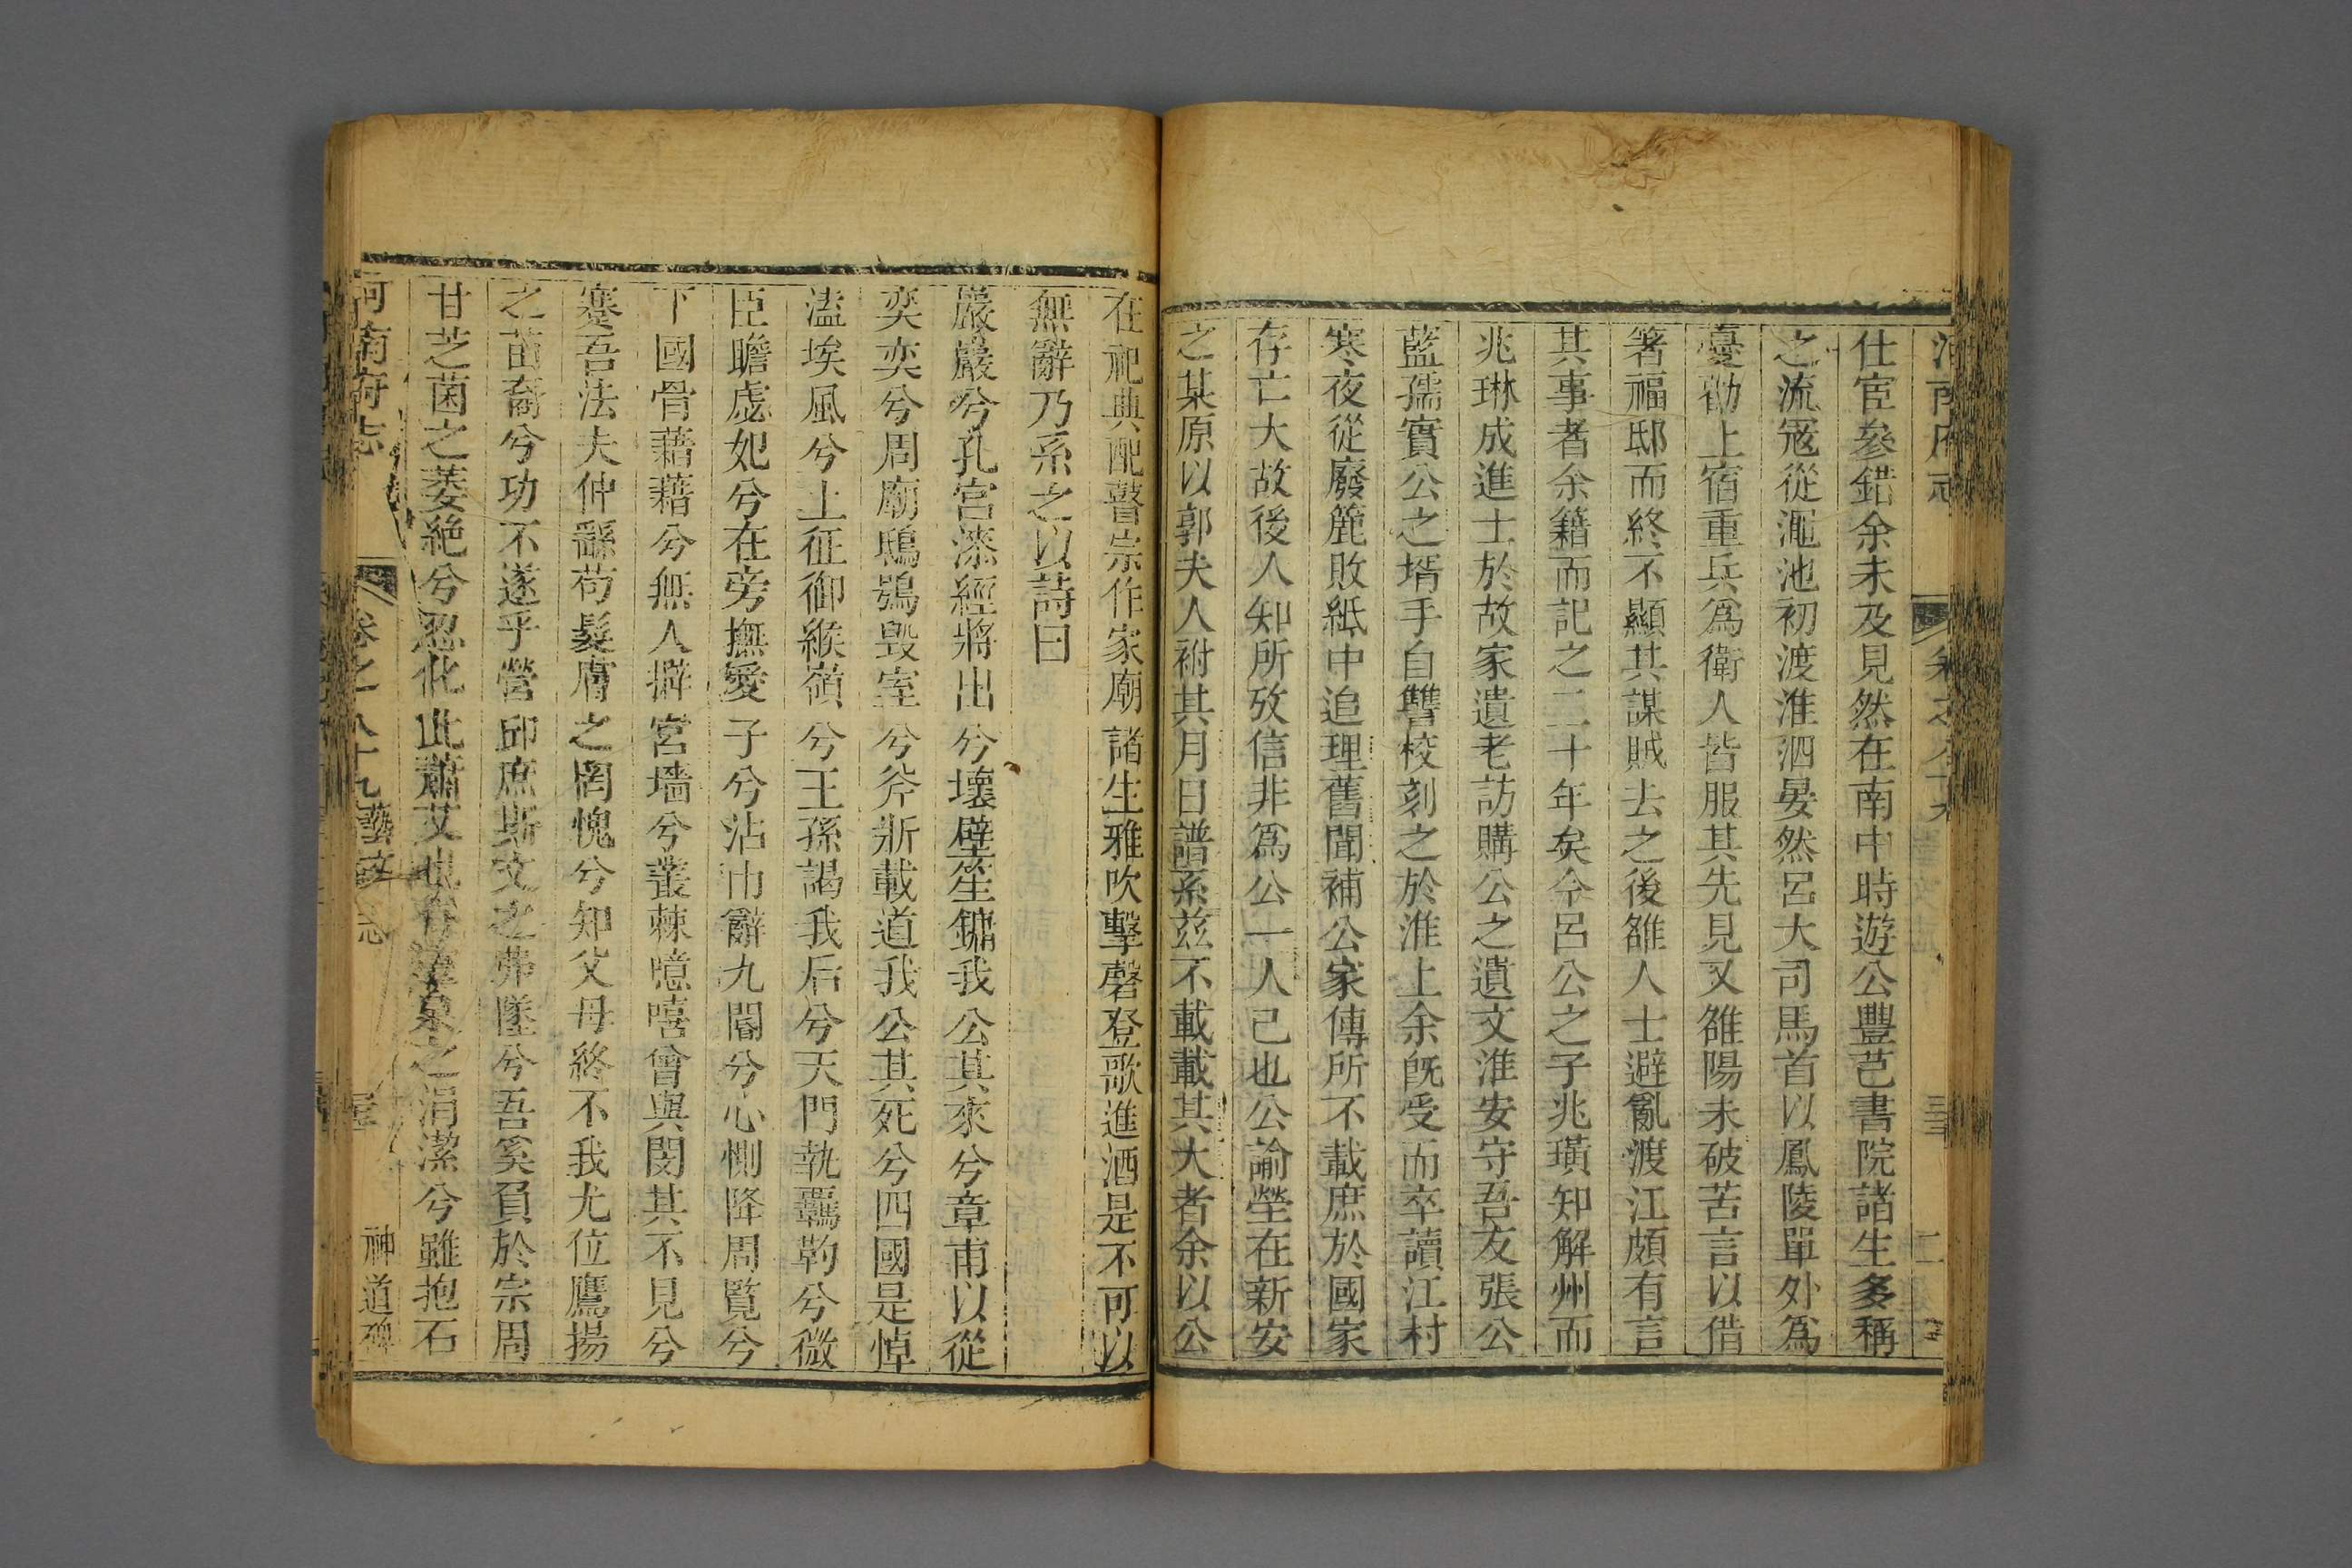 仕宦參錯余未及見然在南中時遊公豐芑書院諸生多稱
之流寇從澠池初渡淮泗晏然呂大司馬首以鳳陵單外爲
憂勸上宿重兵爲衛人皆服其先見又雒陽未破苦言以借
箸福邸而終不顯其謀賊去之後雒人士避亂渡江頗有言
其事者余籍而記之二十年矣今呂公之子兆璜知解州而
兆琳成進士於故家遺老訪購公之遺文淮安守吾友張公
藍孺實公之壻手自讐校刻之於淮上余旣受而卒讀江村
寒夜從廢簏敗紙中追理舊聞補公家傳所不載庶於國家
存亡大故後人知所攷信非爲公一人已也公諭塋在新安
之某原以郭夫人祔其月日譜系茲不載載其大者余以公
在祀典配瞽宗作家廟諸生雅吹擊磬登歌進酒是不可以
無辭乃系之以詩曰
巖巖兮孔宮漆經將出兮壞壁笙鏞我公其來兮章甫以從
奕奕兮周廟鴟鴞毁室兮兮斧斨載道我公其死兮四國是悼
溘埃風兮上征御緱嶺兮王孫謁我后兮天門執羈靮兮微
臣瞻虙妃兮在旁撫愛子兮沾巾辭九閽兮心惻降周覧兮
下國骨藉藉兮無人擗宮墻兮叢棘噫嘻曾與閔其不見兮
蹇吾法夫仲繇苟髮膚之罔愧兮知父母終不我尤位鷹揚
之苗裔兮功不遂乎營邱庶斯文之弗墜兮吾奚負於宗周
甘芝菌之萎絶兮忍化此蕭艾也有瀵泉之涓潔兮雖抱石
河南府志 卷之八十九 藝文志 神道碑